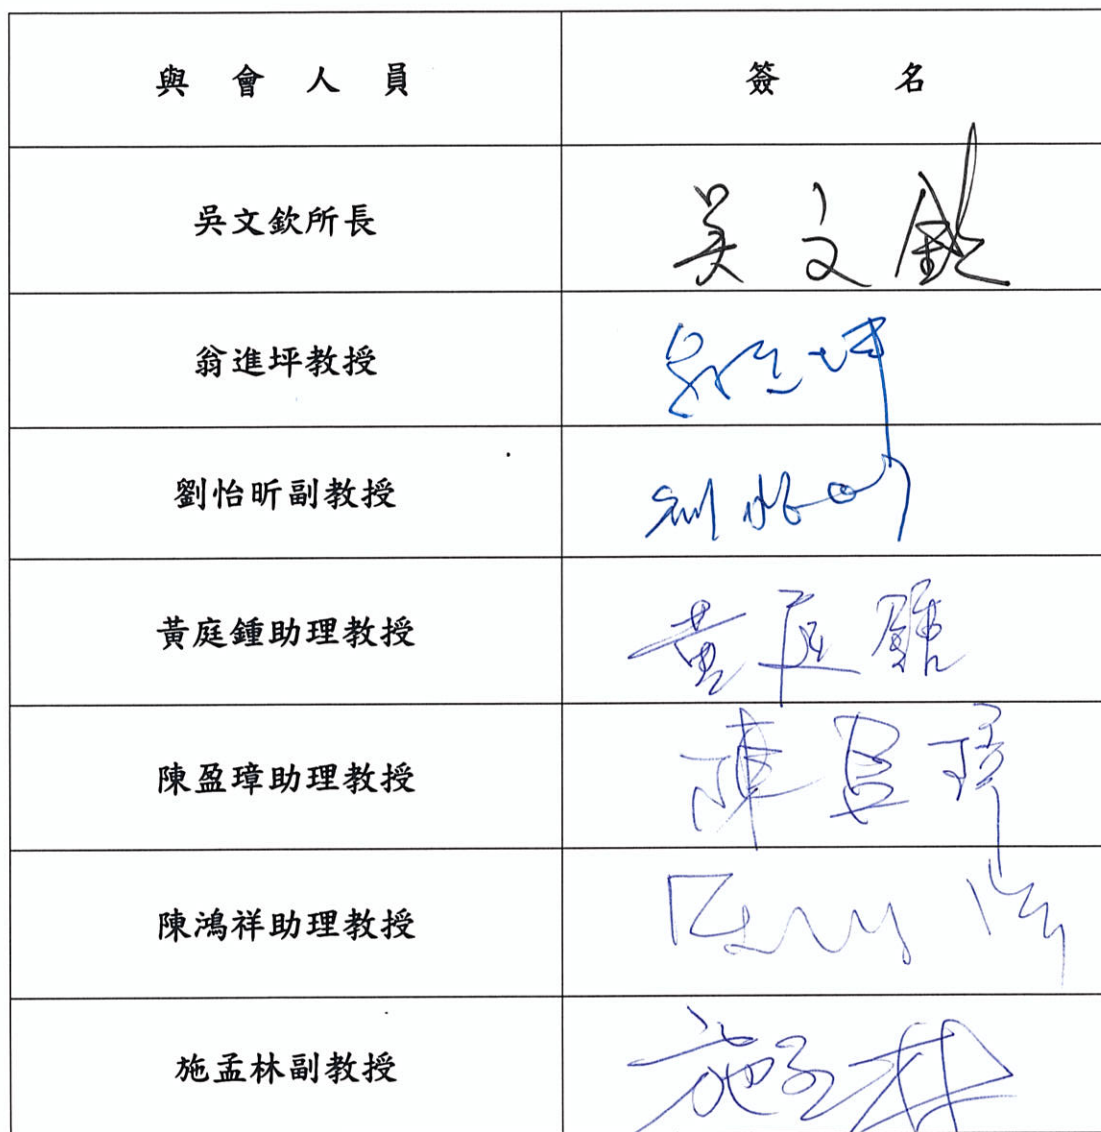 與會人員 簽名
吳文欽所長 吳文欽
翁進坪教授
劉怡昕副教授 劉怡昕
黃庭鍾助理教授 黃庭鍾
陳盈璋助理教授 陳盈璋
陳鴻祥助理教授
施孟林副教授 施孟林